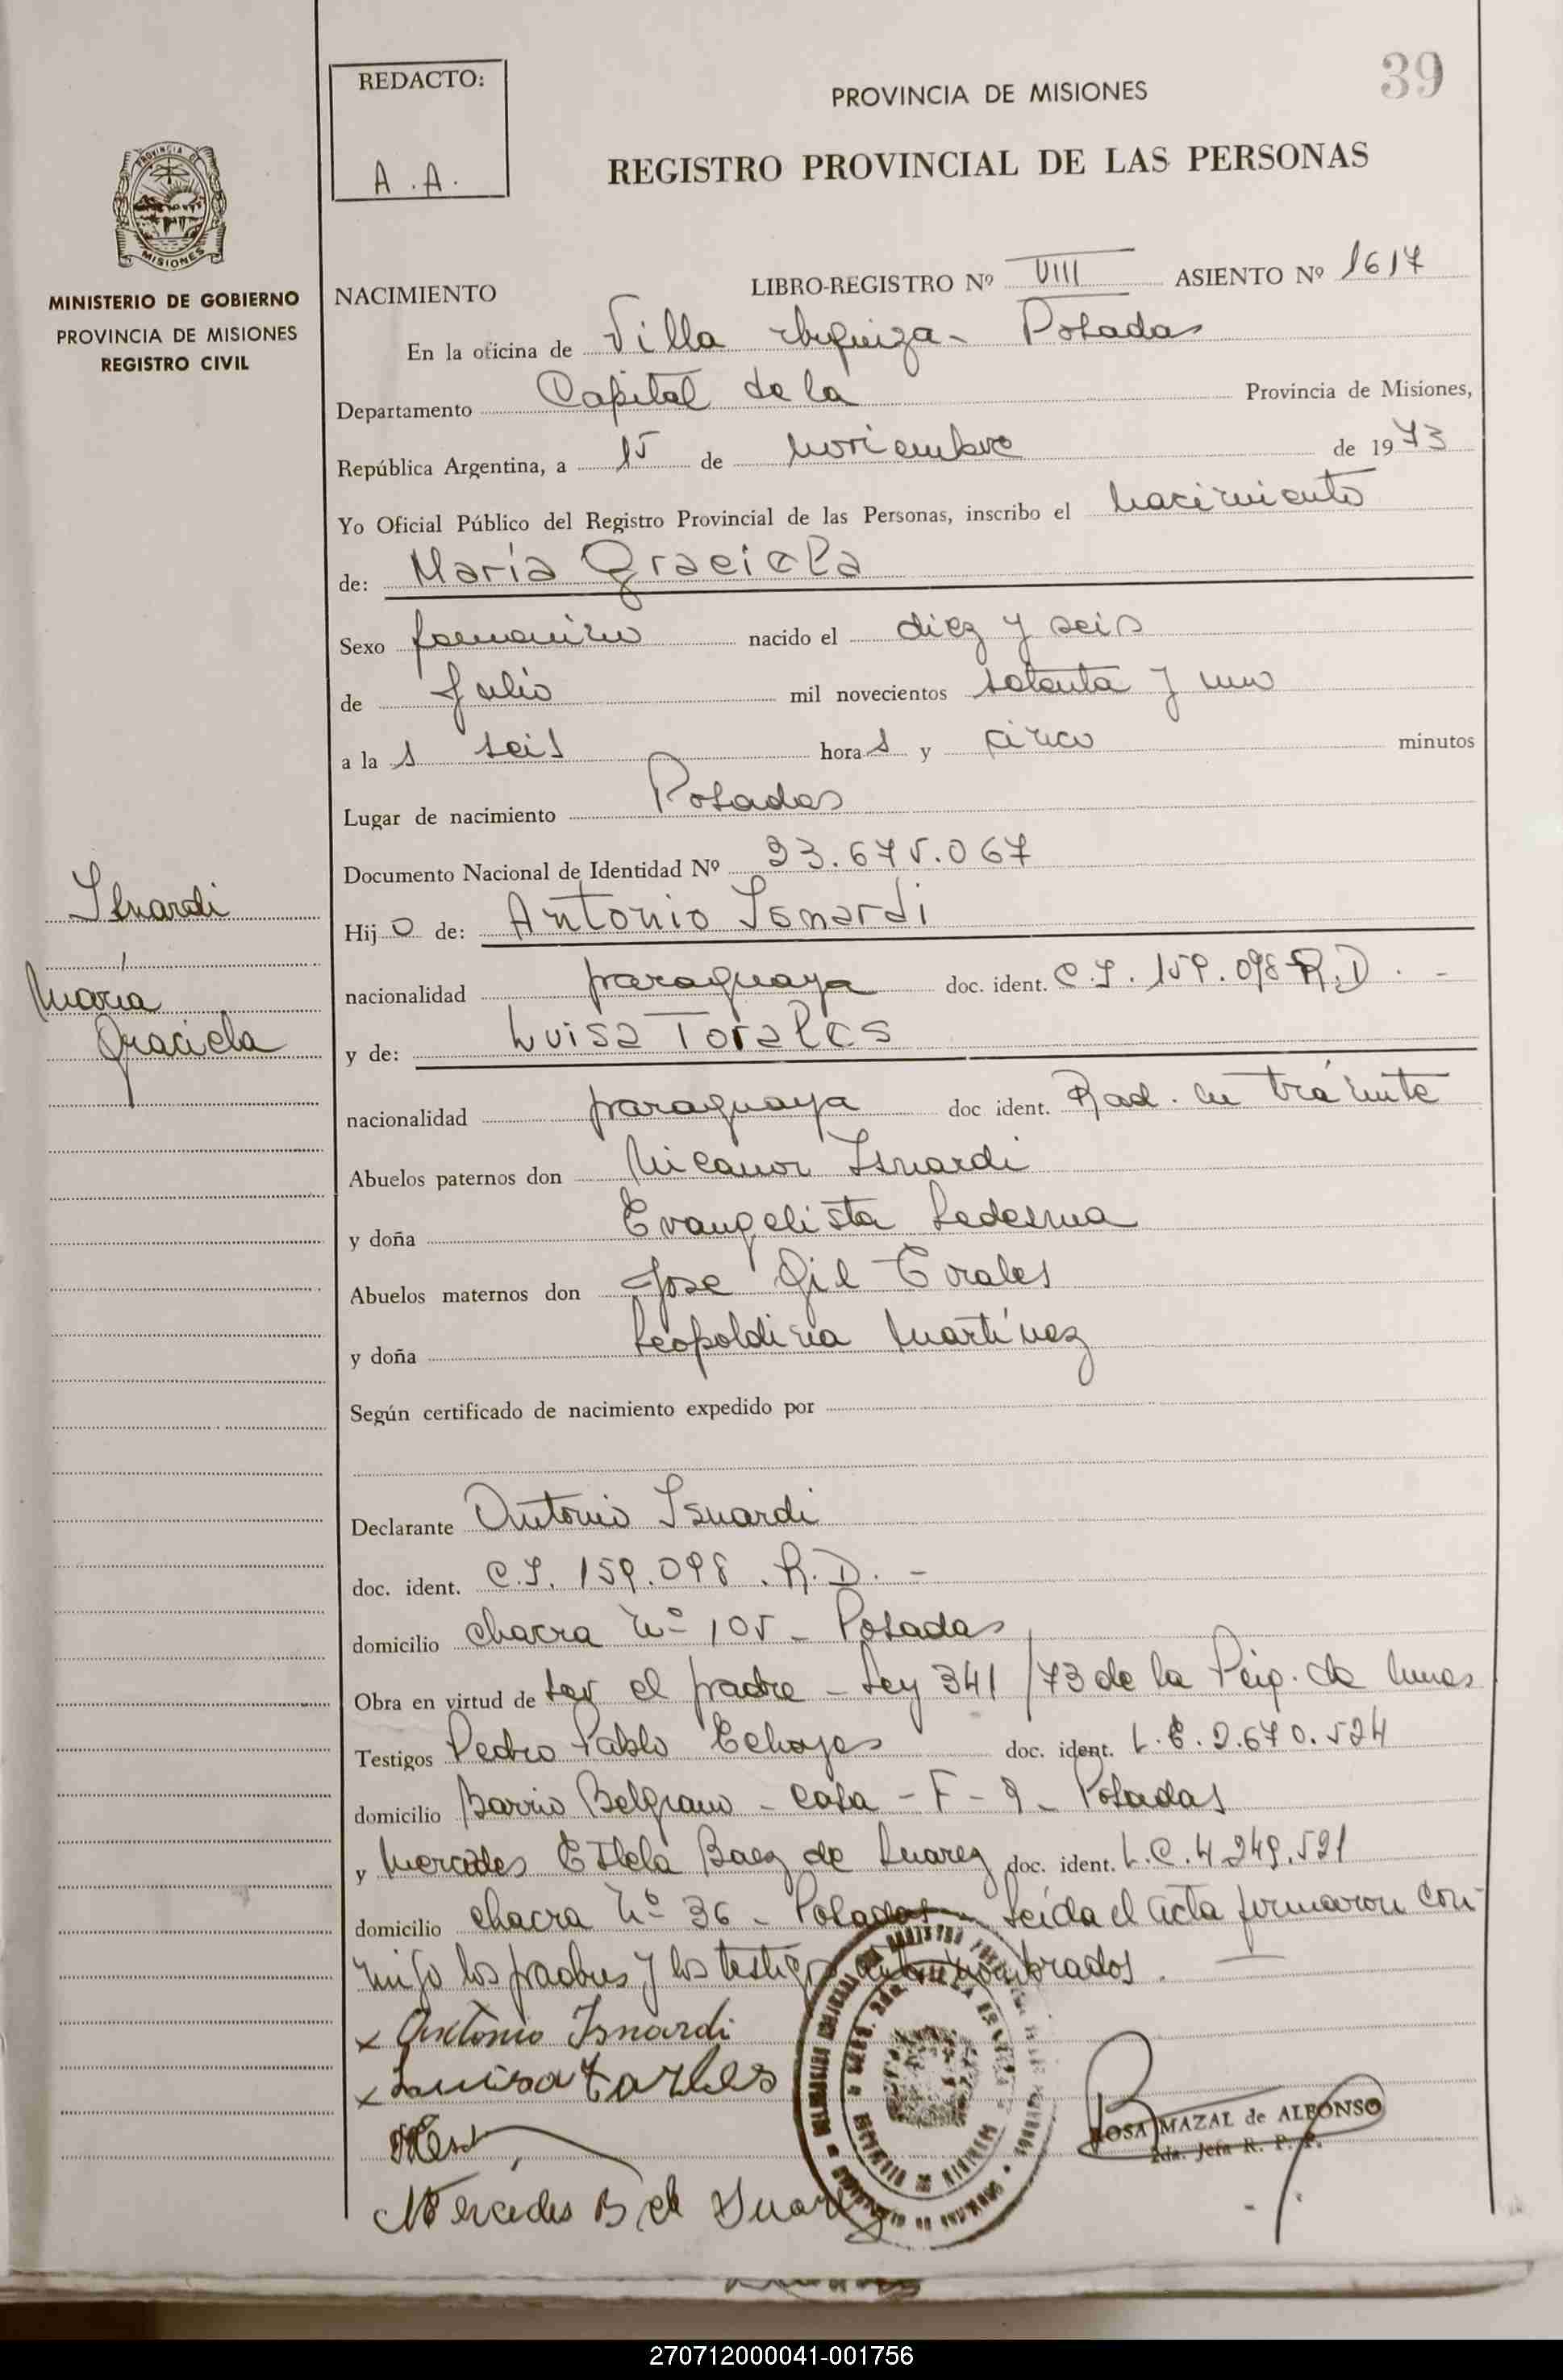 39
REDACTO:
A.A.
PROVINCIA DE MISIONES
REGISTRO PROVINCIAL DE LAS PERSONAS
PROVINCIA DE
MISIONES
MINISTERIO DE GOBIERNO
PROVINCIA DE MISIONES
REGISTRO CIVIL
NACIMIENTO LIBRO-REGISTRO Nº VIII ASIENTO Nº 1617
En la oficina de Villa Urquiza - Posadas
Departamento Capital de la Provincia de Misiones,
República Argentina, a 15 de noviembre de 1973
Yo Oficial Público del Registro Provincial de las Personas, inscribo el nacimiento
de: María Graciela
Sexo femenino nacido el diez y seis
de Julio mil novecientos setenta y uno
a la s seis hora s y cinco minutos
Lugar de nacimiento Posadas
Documento Nacional de Identidad Nº 93.675.067
Isnardi
María
Graciela
Hij o de: Antonio Isnardi
nacionalidad paraguaya doc. ident. C.I. 159.098 R.D. -
y de: Luisa Torales
nacionalidad paraguaya doc ident. Rad. en trámite
Abuelos paternos don Nicanor Isnardi
y doña Evangelista Ledesma
Abuelos maternos don Jose Gil Torales
y doña Leopoldina Martínez
Según certificado de nacimiento expedido por
Declarante Antonio Isnardi
doc. ident. C.I. 159.098. R.D. -
domicilio chacra Nº 105 - Posadas
Obra en virtud de ser el padre - Ley 341/73 de la
Testigos Pedro Pablo doc. ident. L.E. 2.670.524
domicilio Barrio Belgrano - casa - F - 9 - Posadas
y Mercedes Baez de Suarez doc. ident. L.C. 4.249.521
domicilio chacra Nº 36 - Posadas - Leída el acta firmaron con-
migo los padres y los testigos antes nombrados.
x Antonio Isnardi
x Luisa Torales
Mercedes B de Suarez
ROSA MAZAL de ALFONSO
2da. Jefa R. P. P.
270712000041-001756